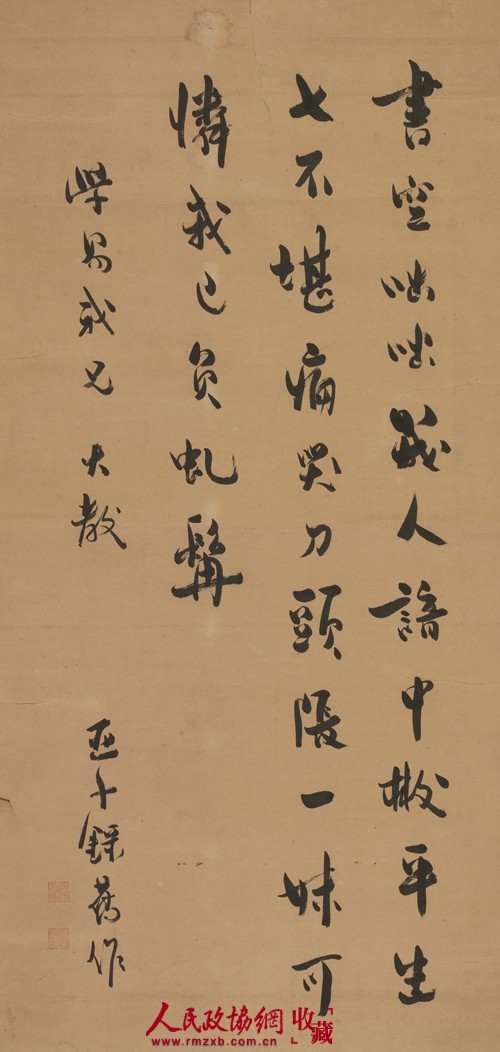 書空咄咄幾人諳中散平生
七不堪痛哭刀頭張一妹可
憐我已負虬髯
學易我兄 大教
亞子錄舊作
人民政協網 「收藏」
www.rmzxb.com.cn